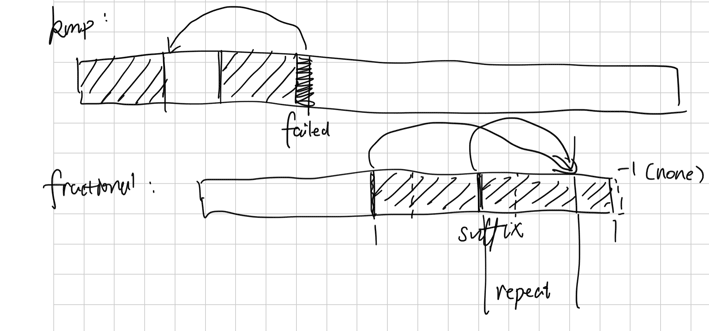 kmp:
failed
fractional:
-1 (none)
suffix
repeat